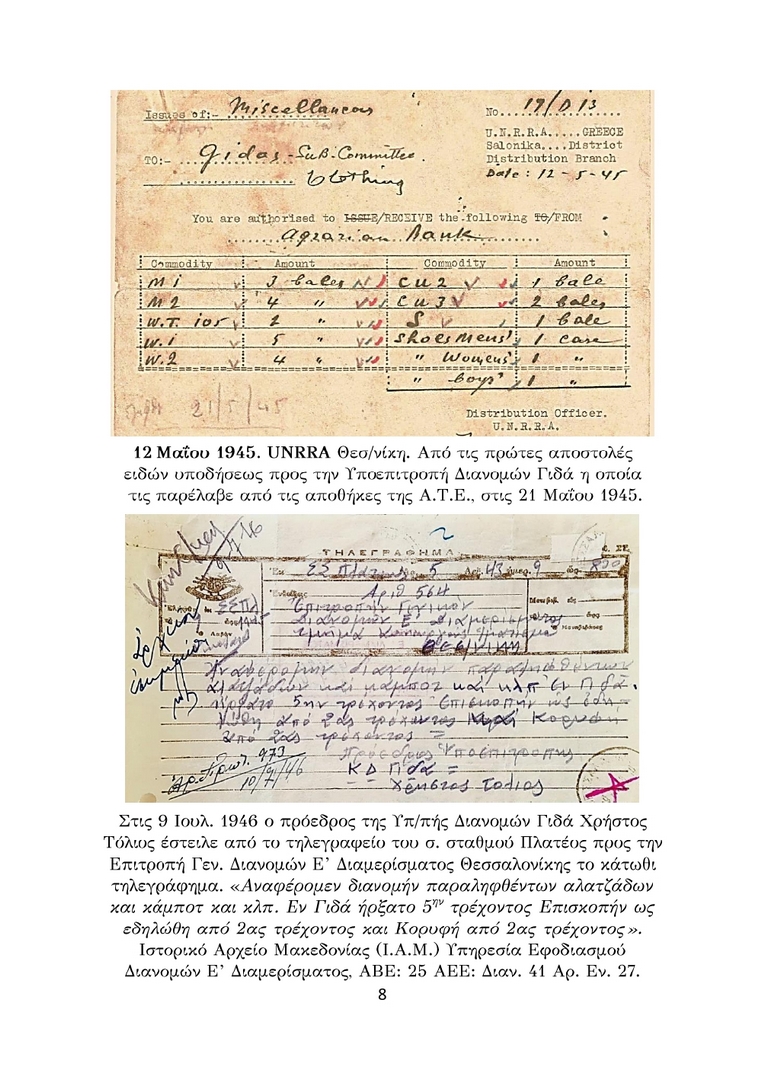 Issues of:- Miscellaneous
No. 17/D 13
U.N.R.R.A.....GREECE
Salonika....District
Distribution Branch
Date: 12-5-45
TO:- Gidas-Sub-Committee.
Clothing
You are authorised to ISSUE/RECEIVE the following TO/FROM
Agrarian Bank
Commodity Amount Commodity Amount
M1 3 bales CU2 1 bale
M2 4 " CU3 2 bales
W.T. 105 2 " S 1 bale
W.1 5 " Shoes Mens' 1 case
W.2 4 " " Womens' 1 "
" boys' 1 "
21/5/45
Distribution Officer.
U.N.R.R.A.
12 Μαΐου 1945. UNRRA Θεσ/νίκη. Από τις πρώτες αποστολές
ειδών υποδήσεως προς την Υποεπιτροπή Διανομών Γιδά η οποία
τις παρέλαβε από τις αποθήκες της Α.Τ.Ε., στις 21 Μαΐου 1945.
ΤΗΛΕΓΡΑΦΗΜΑ
ΣΣ Πλατέως 5 Αρ. 43 ημερ. 9 ώρ. 800
Αριθ 564
Επιτροπήν Γενικών
Διανομών Ε' Διαμερίσματος
Θεσ/νίκην
Αναφέρομεν διανομήν παραληφθέντων
αλατζάδων και κάμποτ και κλπ εν Γιδά.
ήρξατο 5ην τρέχοντος Επισκοπήν ως εδη-
λώθη από 2ας τρέχοντος και Κορυφή
από 2ας τρέχοντος =
Πρόεδρος Υποεπιτροπής
Κ Δ Γιδά =
Χρήστος Τόλιος
Αρ. Πρωτ. 973
10/7/46
Στις 9 Ιουλ. 1946 ο πρόεδρος της Υπ/πής Διανομών Γιδά Χρήστος
Τόλιος έστειλε από το τηλεγραφείο του σ. σταθμού Πλατέος προς την
Επιτροπή Γεν. Διανομών Ε' Διαμερίσματος Θεσσαλονίκης το κάτωθι
τηλεγράφημα. «Αναφέρομεν διανομήν παραληφθέντων αλατζάδων
και κάμποτ και κλπ. Εν Γιδά ήρξατο 5ην τρέχοντος Επισκοπήν ως
εδηλώθη από 2ας τρέχοντος και Κορυφή από 2ας τρέχοντος».
Ιστορικό Αρχείο Μακεδονίας (Ι.Α.Μ.) Υπηρεσία Εφοδιασμού
Διανομών Ε' Διαμερίσματος, ΑΒΕ: 25 ΑΕΕ: Διαν. 41 Αρ. Εν. 27.
8